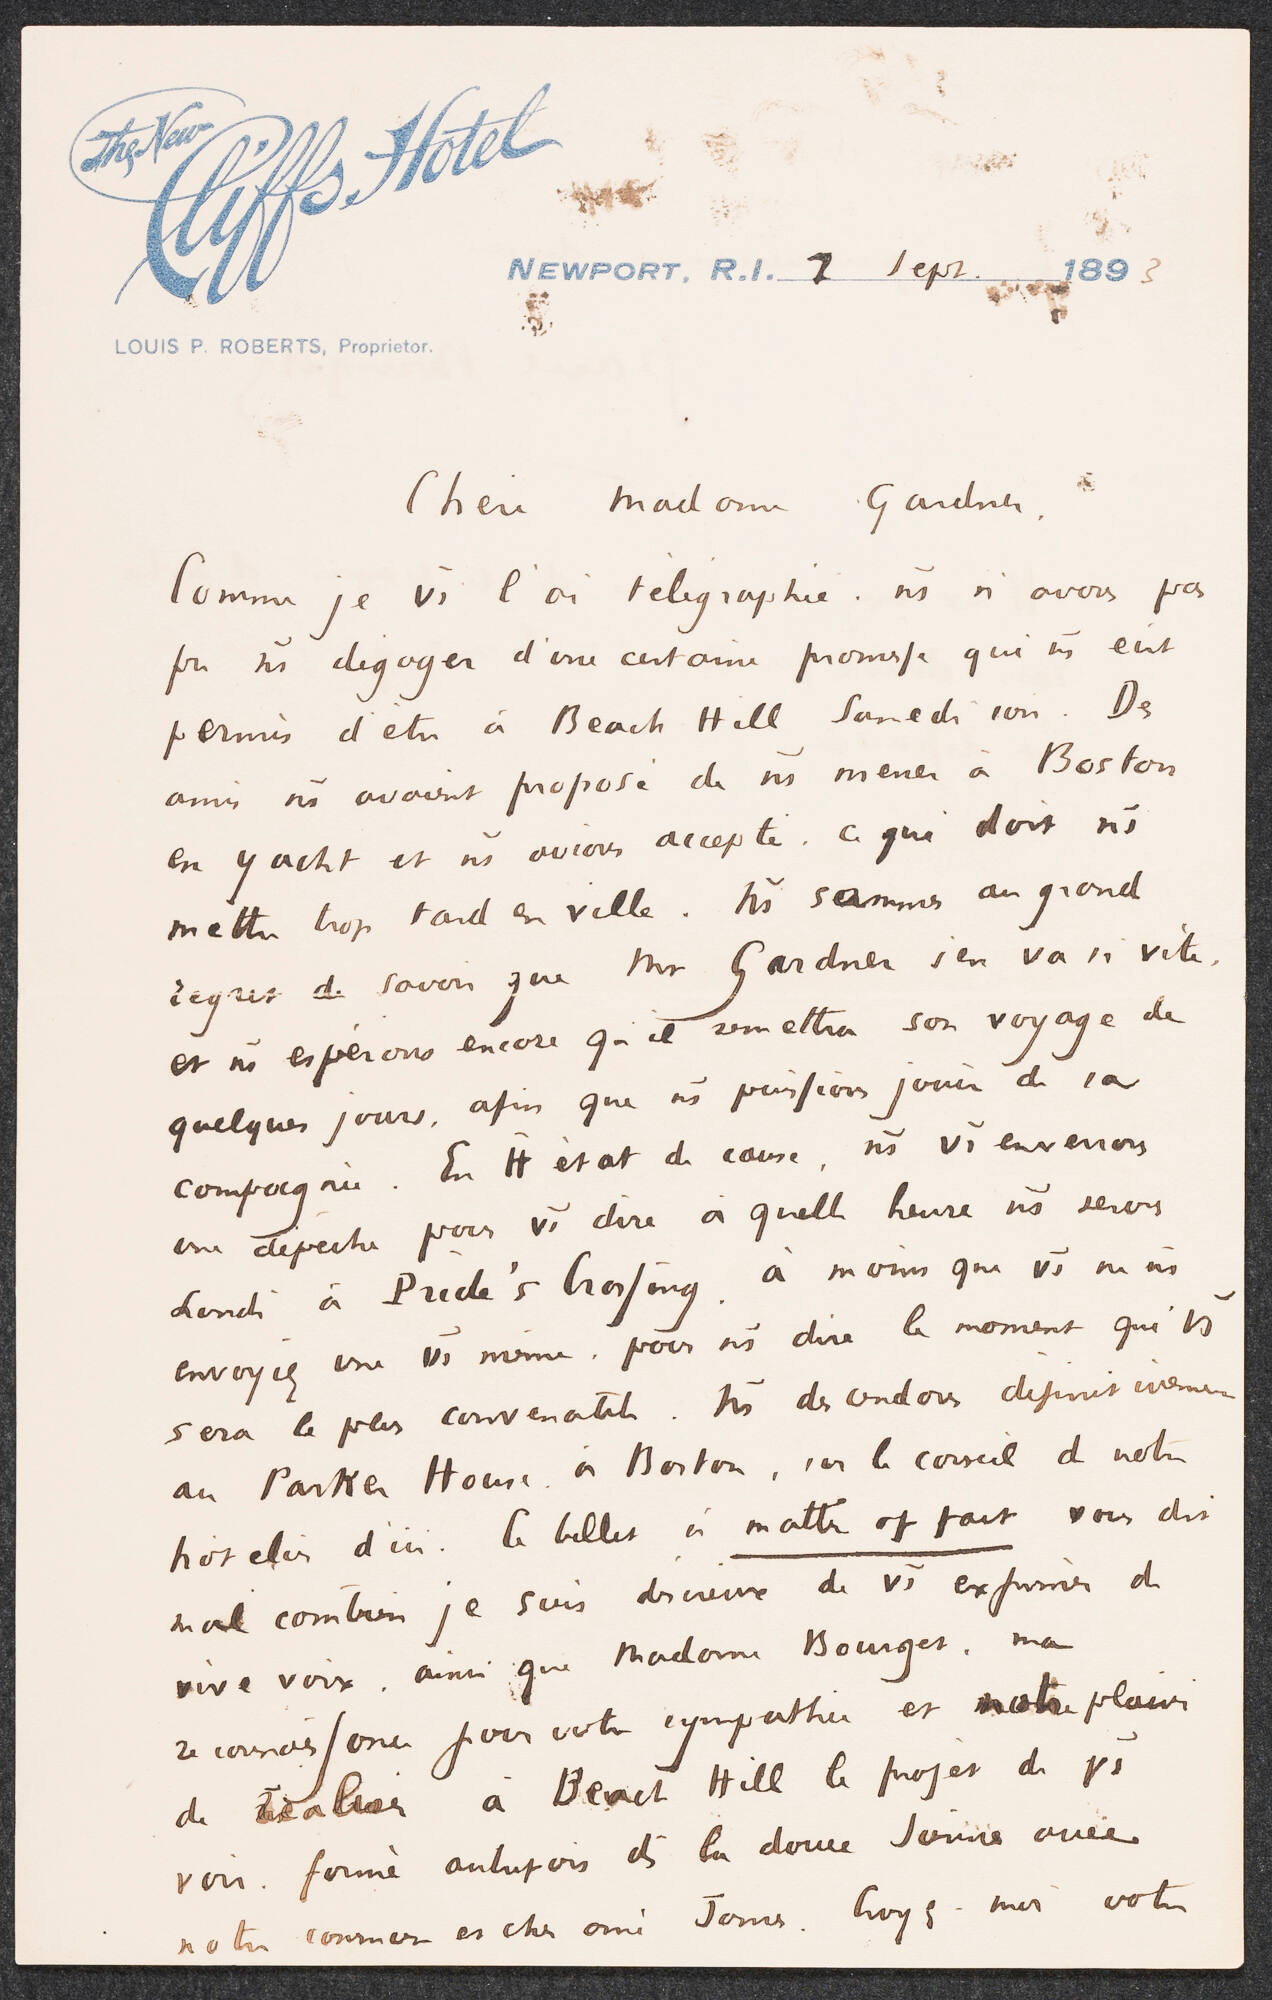 The New
Cliffs Hotel
NEWPORT, R.I. 7 Sept. 1893
LOUIS P. ROBERTS, Proprietor.
Chère Madame Gardner,
Comme je vs l'ai télégraphié, ns n'avons pas
pu ns dégager d'une certaine promesse qui ns eût
permis d'être à Beach Hill Samedi soir. Des
amis ns avaient proposé de ns mener à Boston
en yacht et ns avions accepté, ce qui doit ns
mettre trop tard en ville. Ns sommes au grand
regret de savoir que Mr Gardner s'en va si vite,
et ns espérons encore qu'il remettra son voyage de
quelques jours, afin que ns puissions jouir de sa
compagnie. En tt état de cause, ns vs enverrons
une dépêche pour vs dire à quelle heure ns serons
Lundi à Pride's Crossing, à moins que vs ne ns
envoyiez une vs même, pour ns dire le moment qui vs
sera le plus convenable. Ns descendons définitivement
au Parker House à Boston, sur le conseil de notre
hôtelier d'ici. Ce billet si matter of fact vous dit
mal combien je suis désireux de vs exprimer de
vive voix, ainsi que Madame Bourget, ma
reconnaissance pour votre sympathie et notre plaisir
de réaliser à Beach Hill le projet de vs
voir, formé autrefois ds la douce Sienne avec
notre commun et cher ami James. Croyez-moi votre